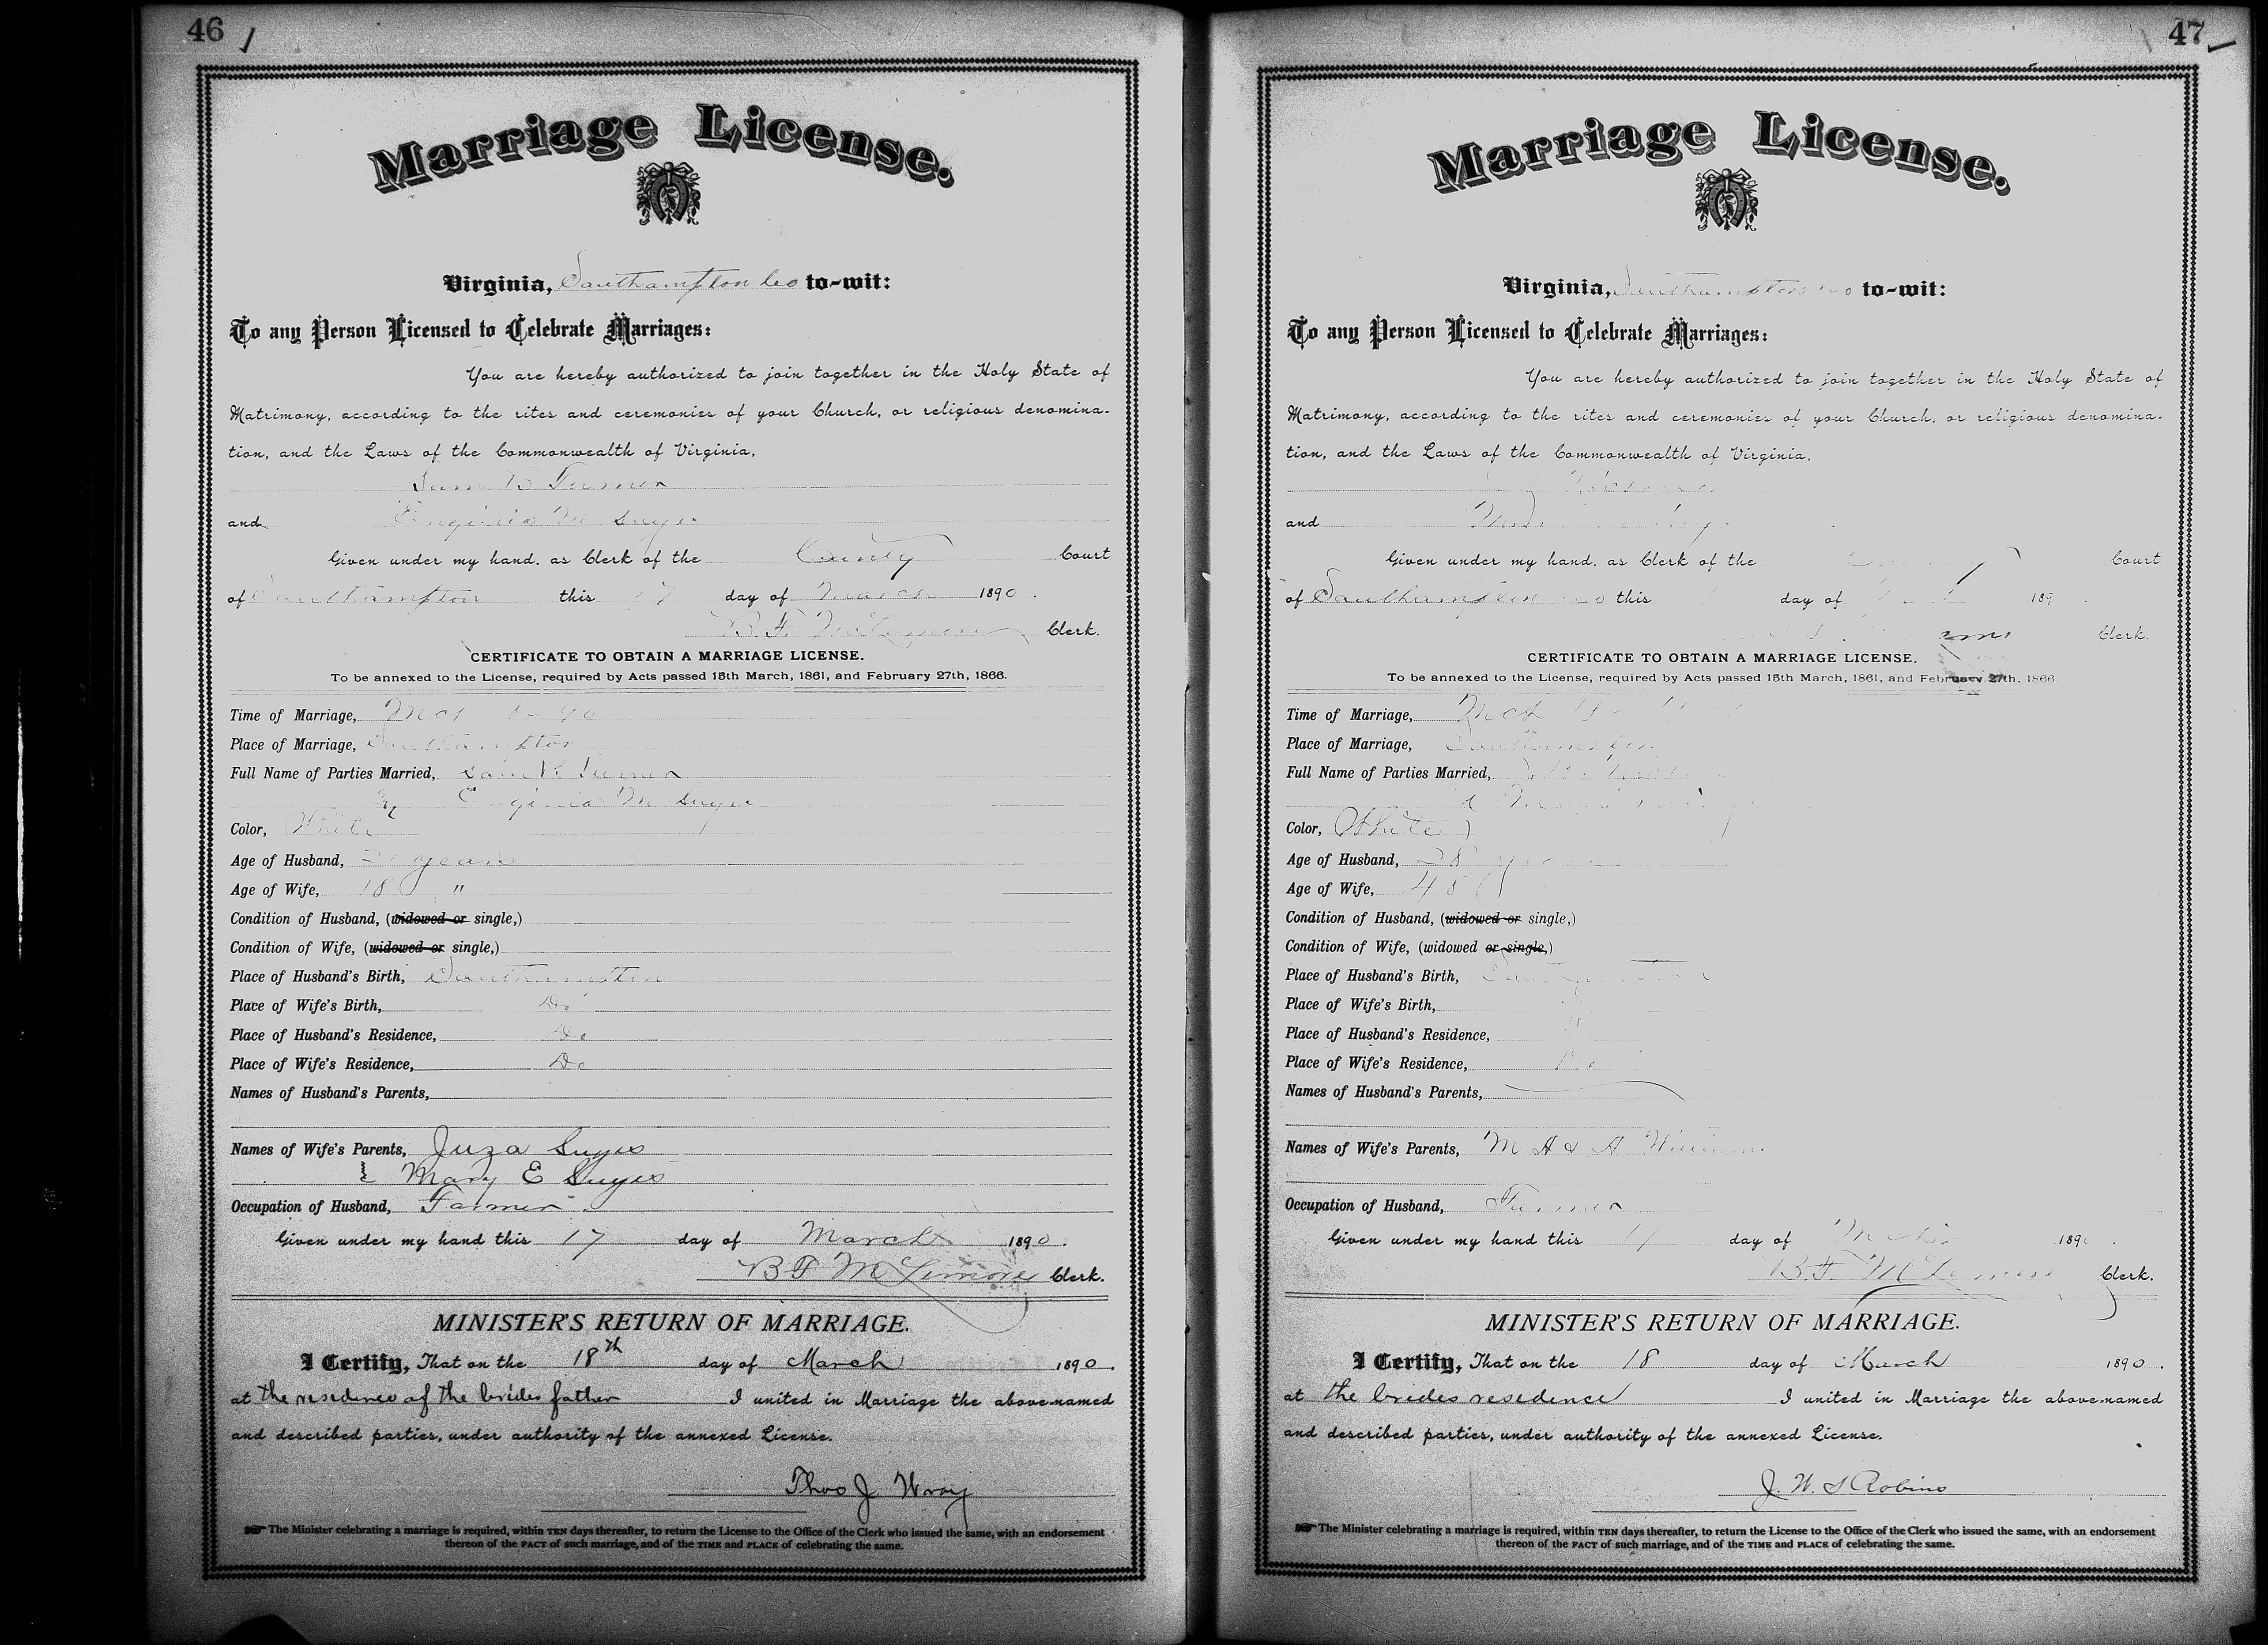 46
Marriage License.
Virginia, Southampton Co to-wit:
To any Person Licensed to Celebrate Marriages:
You are hereby authorized to join together in the Holy State of
Matrimony, according to the rites and ceremonies of your Church, or religious denomina-
tion, and the Laws of the Commonwealth of Virginia,
Sam B Turner
and Euginia M
Given under my hand, as Clerk of the County Court
of Southampton this 17 day of March 1890.
B. F. McLemore Clerk.
CERTIFICATE TO OBTAIN A MARRIAGE LICENSE.
To be annexed to the License, required by Acts passed 15th March, 1861, and February 27th, 1866.
Time of Marriage,
Place of Marriage, Southampton
Full Name of Parties Married, Turner
Euginia M
Color, White
Age of Husband, years
Age of Wife, 18 "
Condition of Husband, (widowed or single,)
Condition of Wife, (widowed or single,)
Place of Husband's Birth, Southampton
Place of Wife's Birth, Do
Place of Husband's Residence, Do
Place of Wife's Residence, Do
Names of Husband's Parents,
Names of Wife's Parents,
& Mary E
Occupation of Husband, Farmer
Given under my hand this 17 day of March 1890.
B F McLemore Clerk.
MINISTER'S RETURN OF MARRIAGE.
I Certify, That on the 18th day of March 1890.
at the residence of the brides father I united in Marriage the above-named
and described parties, under authority of the annexed License.
Thos J Wray
The Minister celebrating a marriage is required, within TEN days thereafter, to return the License to the Office of the Clerk who issued the same, with an endorsement
thereon of the FACT of such marriage, and of the TIME and PLACE of celebrating the same.
47
Marriage License.
Virginia, Southampton Co to-wit:
To any Person Licensed to Celebrate Marriages:
You are hereby authorized to join together in the Holy State of
Matrimony, according to the rites and ceremonies of your Church, or religious denomina-
tion, and the Laws of the Commonwealth of Virginia,
and
Given under my hand, as Clerk of the Court
of Southampton Co this day of 189
Clerk.
CERTIFICATE TO OBTAIN A MARRIAGE LICENSE.
To be annexed to the License, required by Acts passed 15th March, 1861, and February 27th, 1866
Time of Marriage, Mch 18
Place of Marriage, Southampton
Full Name of Parties Married,
Color, White
Age of Husband, 28 years
Age of Wife, 48
Condition of Husband, (widowed or single,)
Condition of Wife, (widowed or single,)
Place of Husband's Birth, Southampton
Place of Wife's Birth,
Place of Husband's Residence,
Place of Wife's Residence, Do
Names of Husband's Parents,
Names of Wife's Parents, M A & A
Occupation of Husband, Farmer
Given under my hand this day of 189
B. F. McLemore Clerk.
MINISTER'S RETURN OF MARRIAGE.
I Certify, That on the 18 day of March 1890.
at the brides residence I united in Marriage the above-named
and described parties, under authority of the annexed License.
J. W. S Robins
The Minister celebrating a marriage is required, within TEN days thereafter, to return the License to the Office of the Clerk who issued the same, with an endorsement
thereon of the FACT of such marriage, and of the TIME and PLACE of celebrating the same.